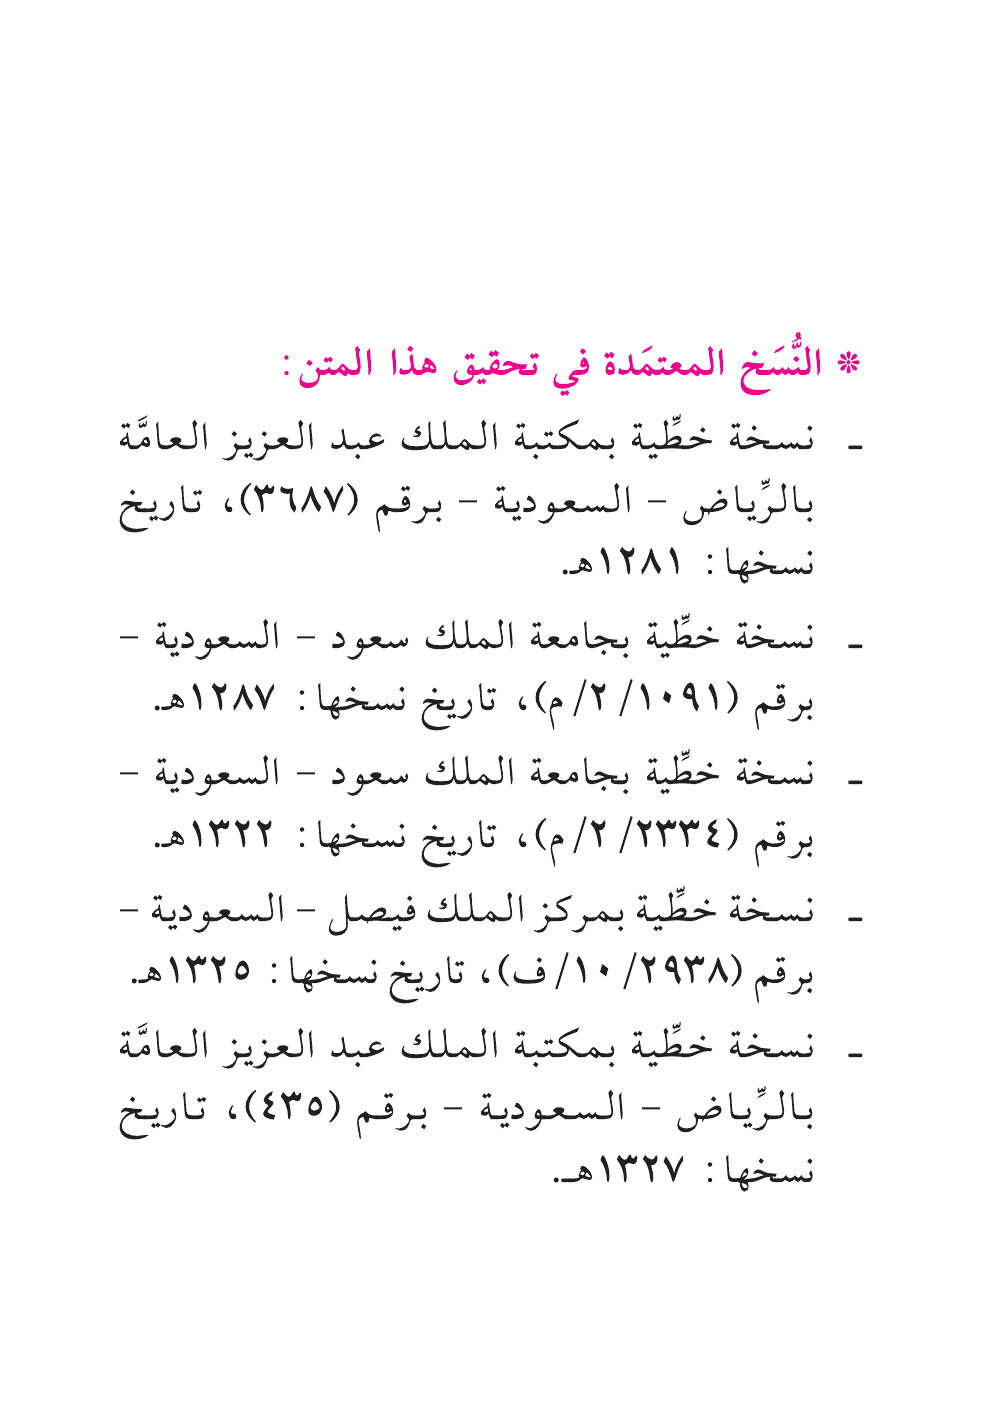 ❊ النُّسَخ المعتمَدة في تحقيق هذا المتن:
ـ نسخة خطِّية بمكتبة الملك عبد العزيز العامَّة
بالرِّياض – السعودية – برقم (٣٦٨٧)، تاريخ
نسخها: ١٢٨١هـ.
ـ نسخة خطِّية بجامعة الملك سعود – السعودية –
برقم (١٠٩١/ ٢/ م)، تاريخ نسخها: ١٢٨٧هـ.
ـ نسخة خطِّية بجامعة الملك سعود – السعودية –
برقم (٢٣٣٤/ ٢/ م)، تاريخ نسخها: ١٣٢٢هـ.
ـ نسخة خطِّية بمركز الملك فيصل – السعودية –
برقم (٢٩٣٨/ ١٠/ ف)، تاريخ نسخها: ١٣٢٥هـ.
ـ نسخة خطِّية بمكتبة الملك عبد العزيز العامَّة
بالرِّياض – السعودية – برقم (٤٣٥)، تاريخ
نسخها: ١٣٢٧هـ.